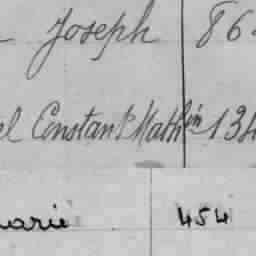 Joseph 86
Constant Mathin 134
marie 454